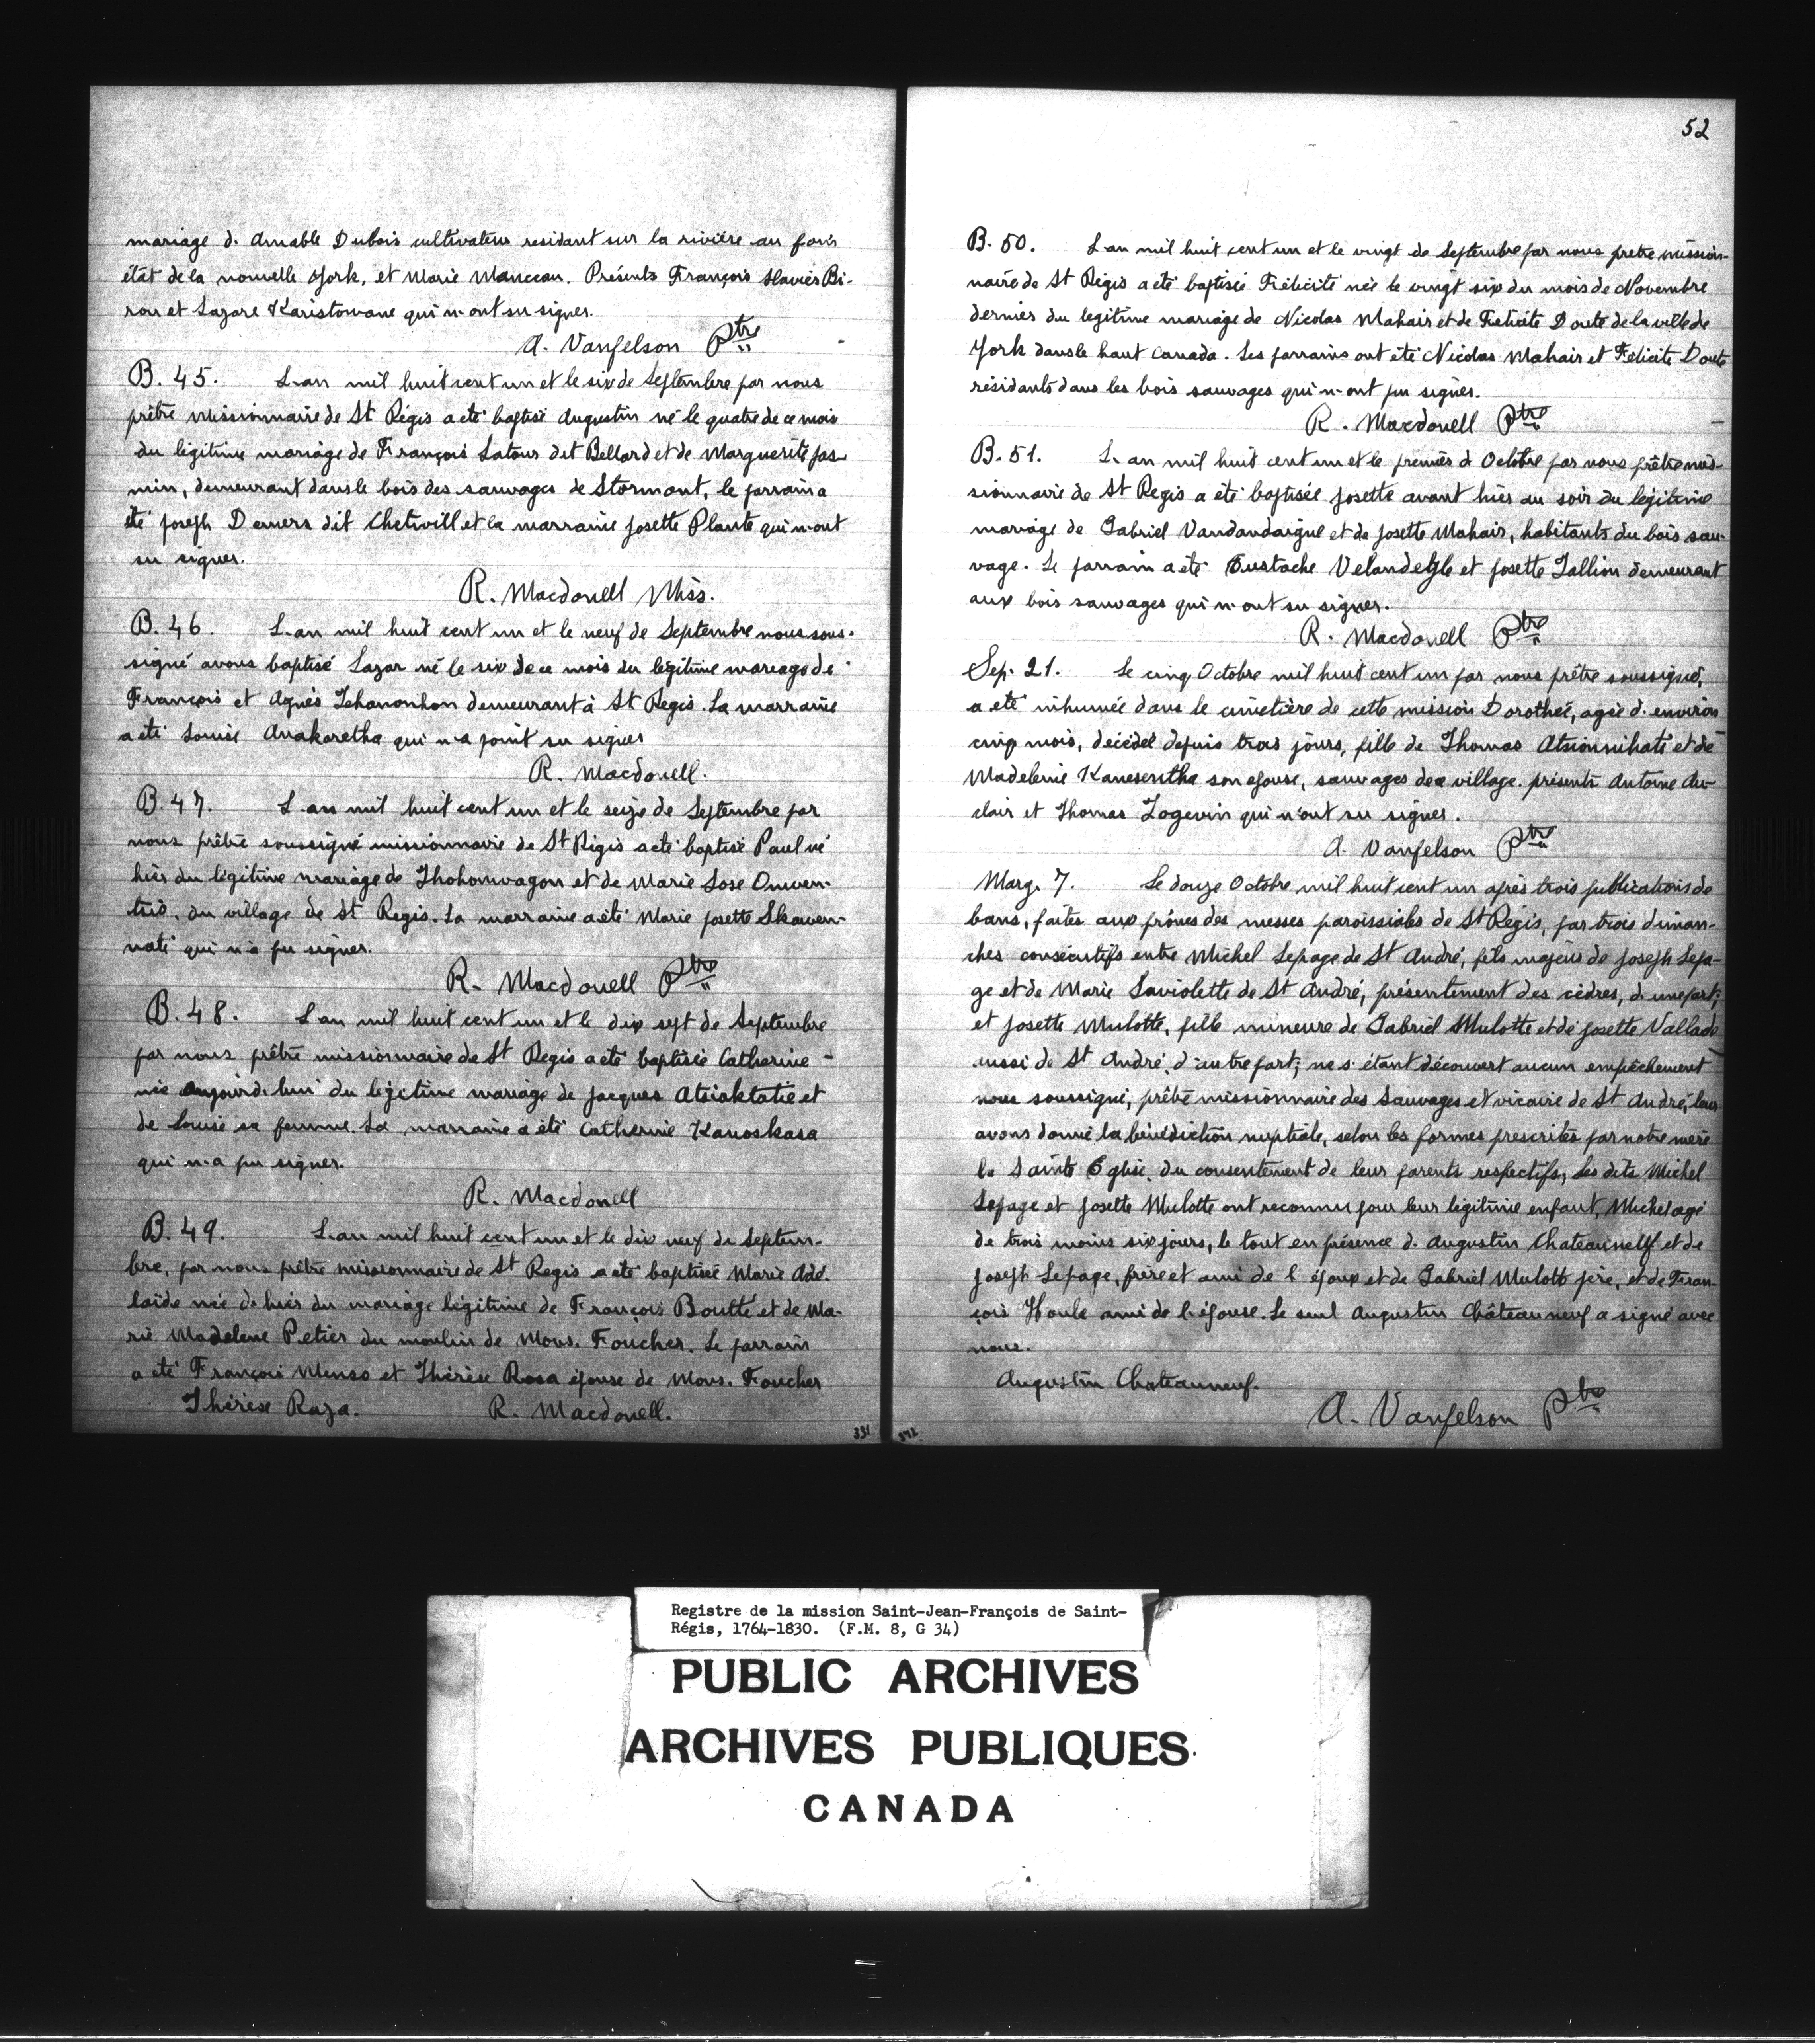 mariage d. Amable Dubois cultivateur residant sur la rivière au fovis
état de la nouvelle York, et Marie Manceau. Présents François Xavier Bi-
ron et Lazare Karistowane qui n'ont su signer.
A. Vanfelson Ptre
B. 45. L'an mil huit cent un et le six de Septembre par nous
prêtre Missionnaire de St Régis a été baptisé Augustin né le quatre de ce mois
du légitime mariage de François Latour dit Bellard et de Marguerite Jas-
min, demeurant dans le bois des sauvages de Stormont, le parrain a
été Joseph Demers dit Chetivill et la marraine Josette Plante qui n'ont
su signer.
R. Macdonell Miss.
B. 46. L'an mil huit cent un et le neuf de Septembre nous sous-
signé avons baptisé Lazar né le six de ce mois du légitime mariage de
François et Agnès Tehanonhon demeurant à St Regis. La marraine
a été Louise Anakaretha qui n'a point su signer
R. Macdonell.
B. 47. L'an mil huit cent un et le seize de Septembre par
nous prêtre soussigné missionnaire de St Régis a été baptisé Paul né
hier du légitime mariage de Thohonwagon et de Marie Lose Onwen-
tsio, du village de St Regis. La marraine a été Marie Josette Skawen-
nati qui n'a pu signer.
R. Macdonell Ptre
B. 48. L'an mil huit cent un et le dix sept de Septembre
par nous prêtre missionnaire de St Regis a été baptisée Catherine -
née aujourd'hui du légitime mariage de Jacques Atsiaktatie et
de Louise sa femme. La marraine a été Catherine Kanoskasa
qui n'a pu signer.
R. Macdonell
B. 49. L'an mil huit cent un et le dix neuf de Septem-
bre, par nous prêtre missionnaire de St Regis a été baptisée Marie Adé-
laïde née d'hier du mariage légitime de François Boutté et de Ma-
rie Madelene Petier du moulin de Mons. Foucher. Le parrain
a été François Menso et Thérèse Rosa épouse de Mons. Foucher
Thérèse Raza. R. Macdonell.
331
52
B. 50. L'an mil huit cent un et le vingt de Septembre par nous prêtre mission-
naire de St Régis a été baptisée Félicité née le vingt six du mois de Novembre
dernier du legitime mariage de Nicolas Mahair et de Felicite Doute de la ville de
York dans le haut Canada. Les parrains ont été Nicolas Mahair et Félicité Doute
résidants dans les bois sauvages qui n'ont pu signer.
R. Macdonell Ptre
B. 51. L'an mil huit cent un et le premier d'Octobre par nous prêtre mis-
sionnaire de St Regis a été baptisée Josette avant hier au soir du légitime
mariage de Gabriel Vandandaigue et de Josette Mahair, habitants du bois sau-
vage. Le parrain a été Eustache et Josette Tallion demeurant
aux bois sauvages qui n'ont su signer.
R. Macdonell Ptre
Sep. 21. Le cinq Octobre mil huit cent un par nous prêtre soussigné,
a été inhumée dans le cimetière de cette mission Dorothée, agée d'environ
cinq mois, décédée depuis trois jours, fille de Thomas Atsionnihati et de
Madeleine Kanesentha son épouse, sauvages de ce village. présents Antoine Au-
clair et Thomas Logevin qui n'ont su signer.
A. Vanfelson Ptre
Marg. 7. Le douze Octobre mil huit cent un après trois publications de
bans, faites aux prônes des messes paroissiales de St Régis, par trois diman-
ches consécutifs entre Michel Lepage de St André, fils majeur de Joseph Lepa-
ge et de Marie Laviolette de St André, présentement des cèdres, d. une part;
et Josette Mulotte, fille mineure de Gabriel Mulotte et de Josette Vallade
aussi de St André, d'autre part; ne s'étant découvert aucun empêchement
nous soussigné, prêtre missionnaire des Sauvages et vicaire de St André, leur
avons donné la bénédiction nuptiale, selon les formes prescrites par notre mère
la Sainte Eglise, du consentement de leur parents respectifs, les dits Michel
Lepage et Josette Mulotte ont reconnu pour leur légitime enfant, Michel agé
de trois moins six jours, le tout en présence d. Augustin Chateauneuf et de
Joseph Lepage, frère et ami de l'époux et de Gabriel Mulott père, et de Fran-
çois Houle ami de l'épouse. Le seul Augustin Châteauneuf a signé avec
nous.
Augustin Chateauneuf.
A. Vanfelson Ptre
Registre de la mission Saint-Jean-François de Saint-
Régis, 1764-1830. (F.M. 8, G 34)
PUBLIC ARCHIVES
ARCHIVES PUBLIQUES
CANADA